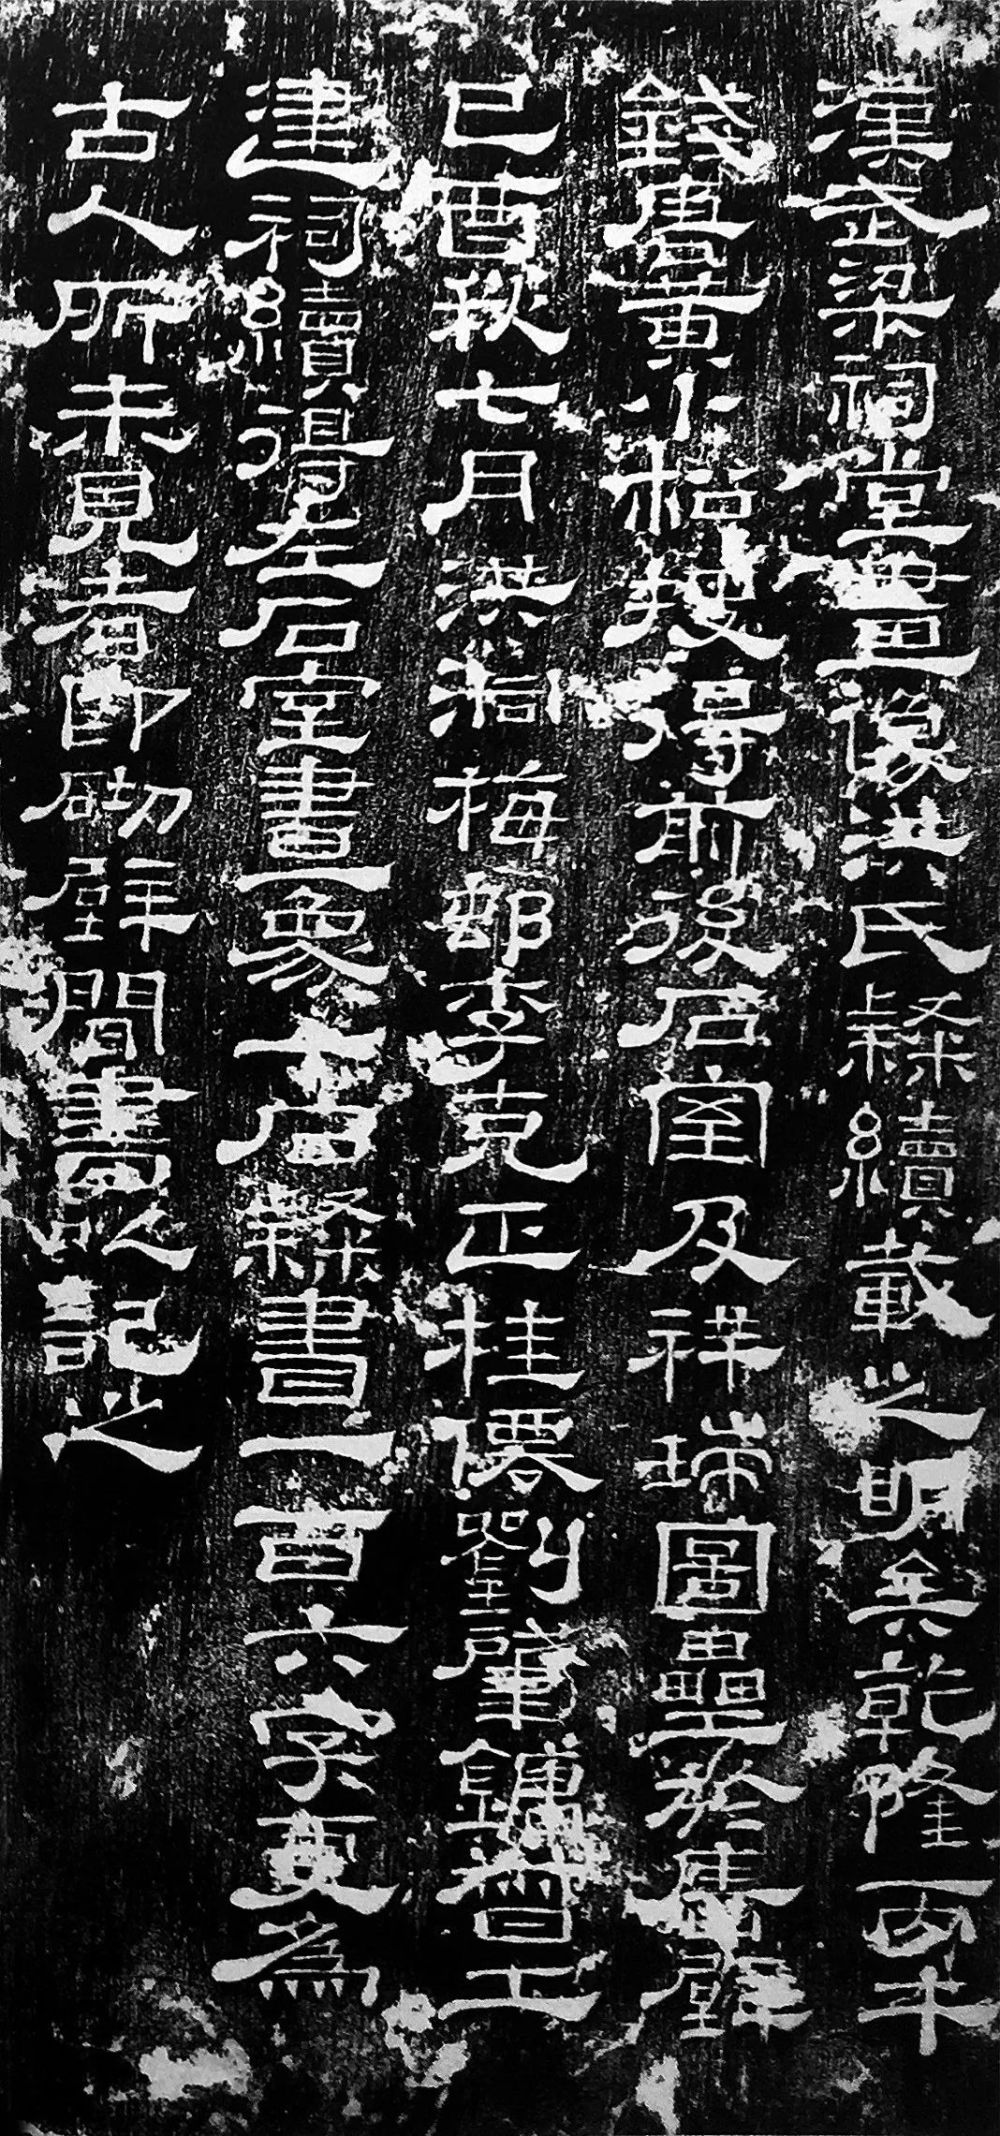 漢武梁祠堂畫像洪氏隸續載之明矣乾隆丙午
錢唐黃小松搜得前後石室及祥瑞圖壘於舊壁
己酉秋七月洪洞梅邨李克正桂儒劉肇鏞督工
建祠續得左石室畫象古隸書一百六字更為
古人所未見者即砌壁間書以記之